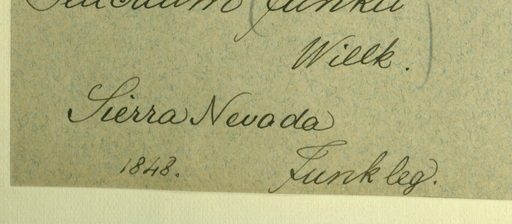 (Funkii
Willk.)
Sierra Nevada
1848. Funk leg.